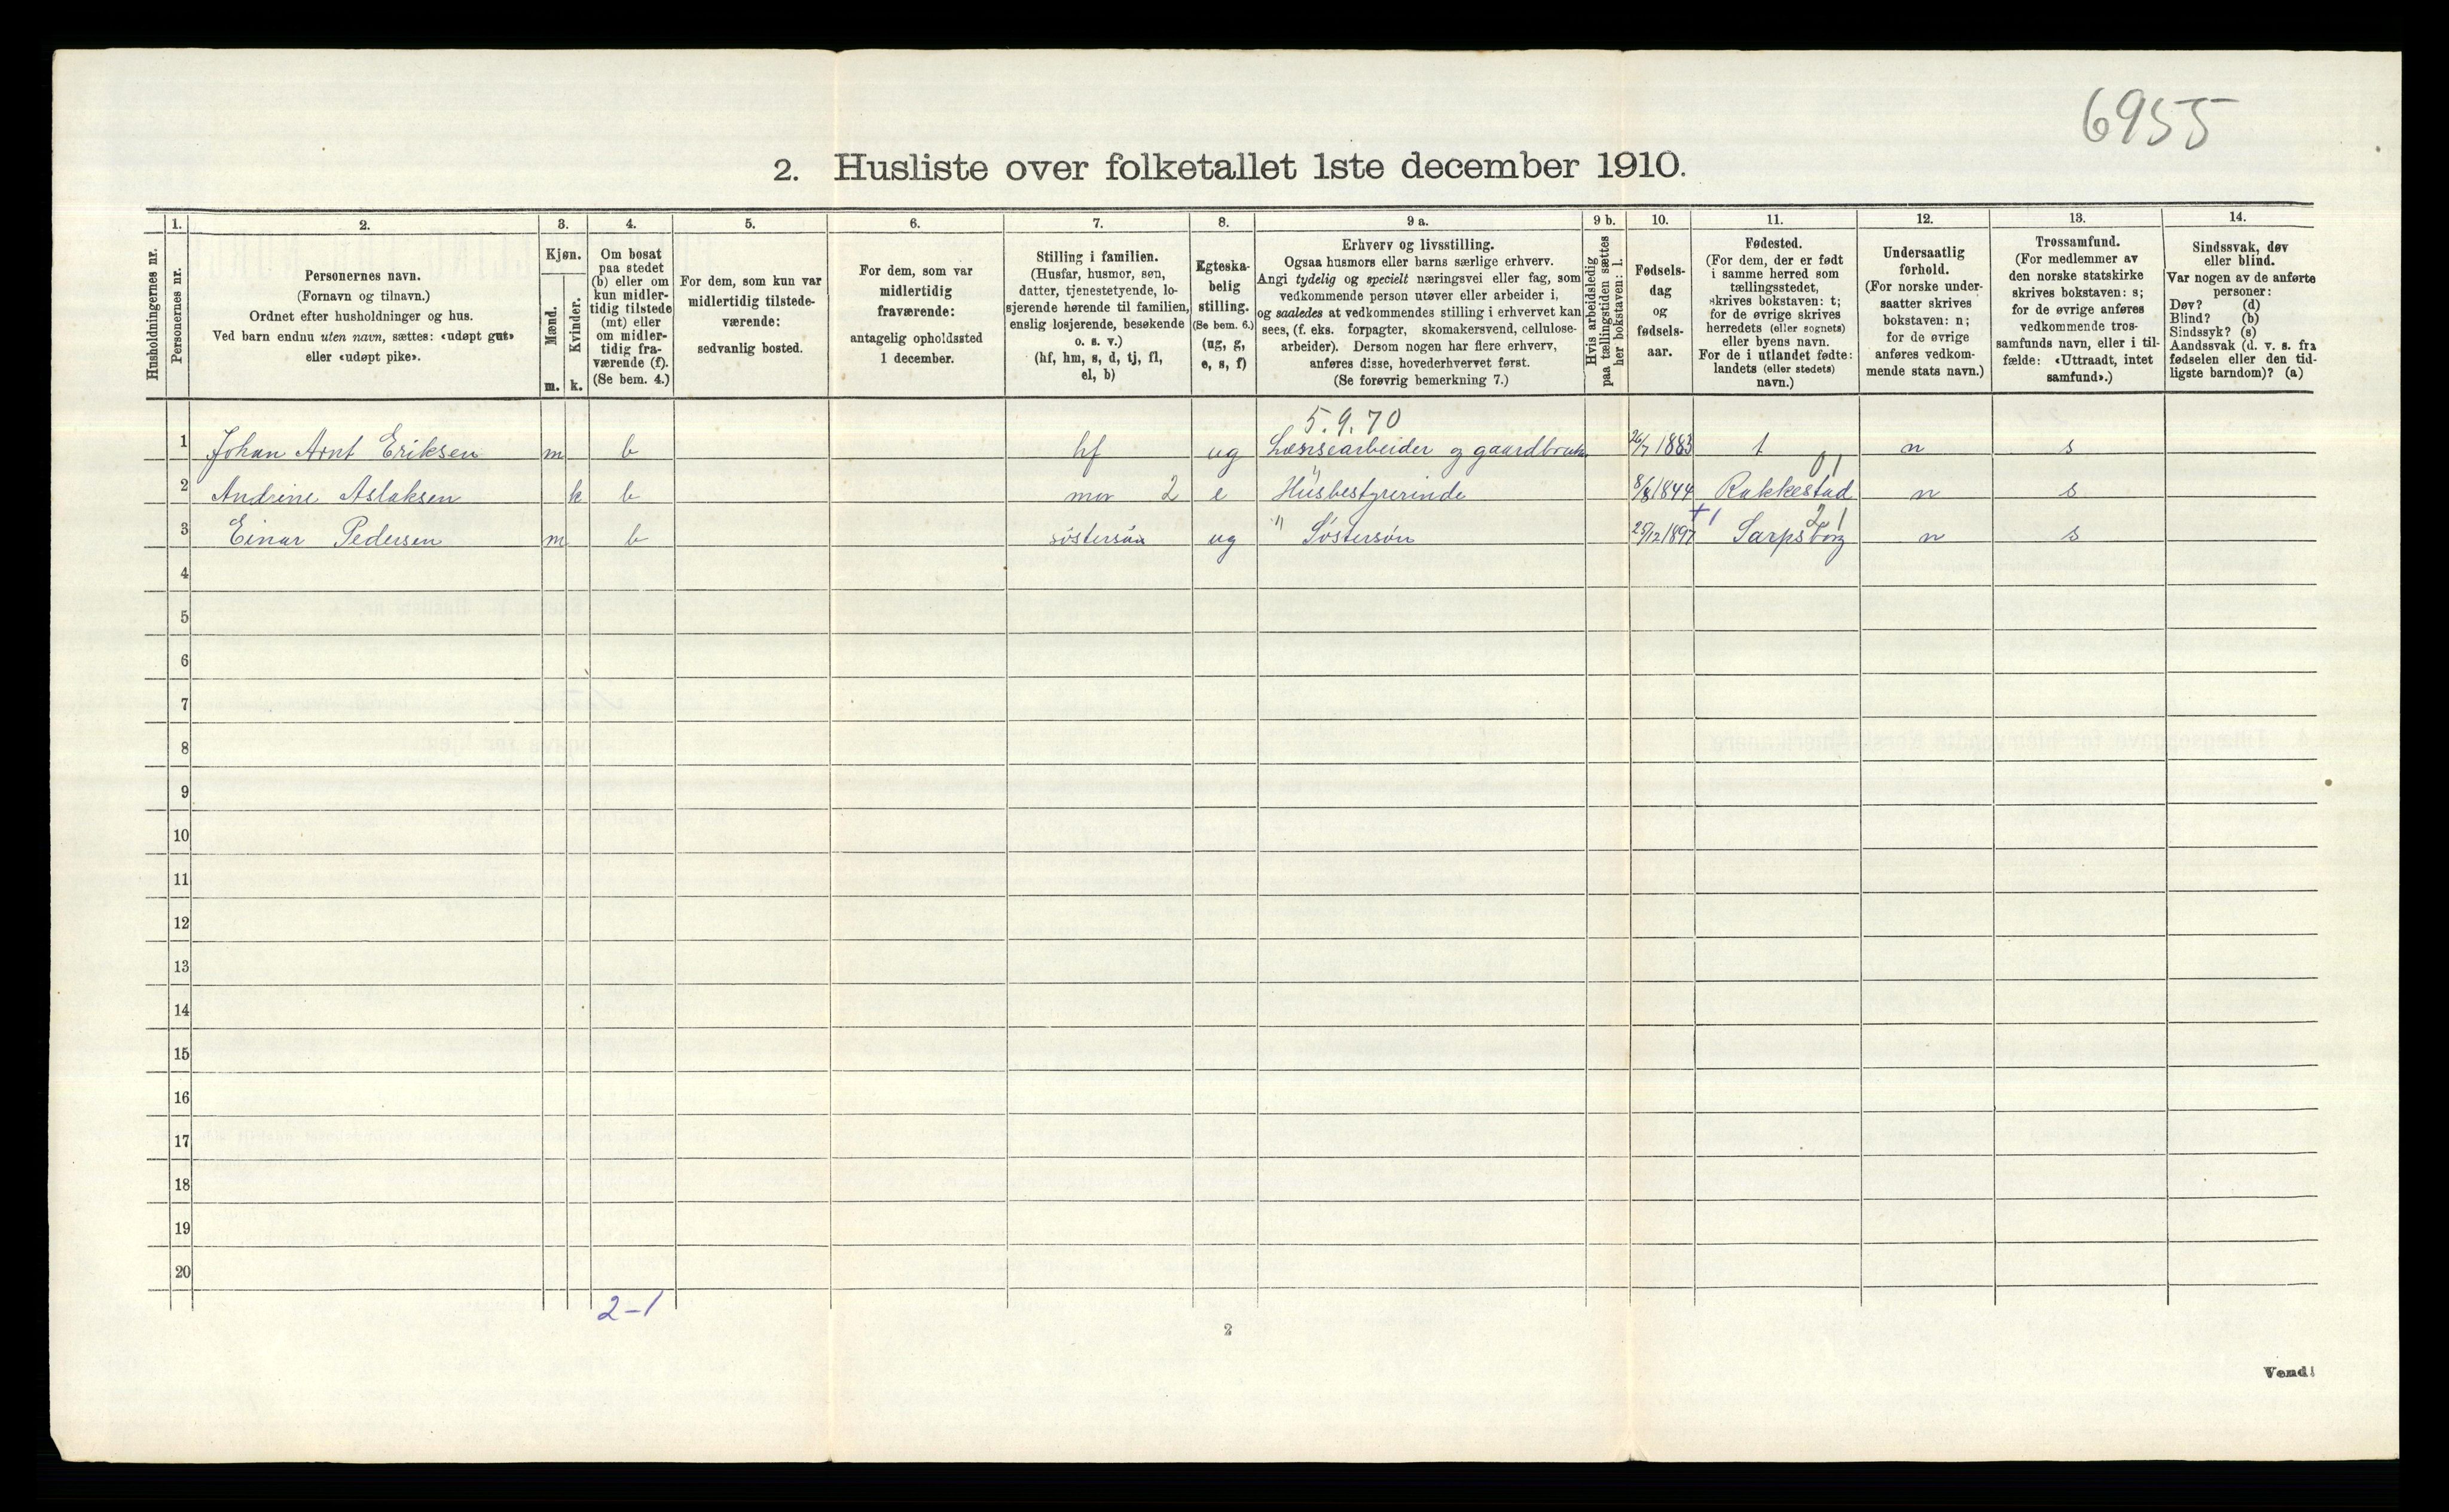 6955
2. Husliste over folketallet 1ste december 1910.
Husholdningernes nr.
1.
Personernes nr.
2.
Personernes navn.
(Fornavn og tilnavn.)
Ordnet efter husholdninger og hus.
Ved barn endnu uten navn, sættes: «udøpt gut»
eller «udøpt pike».
3.
Kjøn.
Mænd.
Kvinder.
m.
k.
4.
Om bosat
paa stedet
(b) eller om
kun midler-
tidig tilstede
(mt) eller
om midler-
tidig fra-
værende (f).
(Se bem. 4.)
5.
For dem, som kun var
midlertidig tilstede-
værende:
sedvanlig bosted.
6.
For dem, som var
midlertidig
fraværende:
antagelig opholdssted
1 december.
7.
Stilling i familien.
(Husfar, husmor, søn,
datter, tjenestetyende, lo-
sjerende hørende til familien,
enslig losjerende, besøkende
o. s. v.)
(hf, hm, s, d, tj, fl,
el, b)
8.
Egteska-
belig
stilling.
(Se bem. 6.)
(ug, g,
e, s, f)
9 a.
Erhverv og livsstilling.
Ogsaa husmors eller barns særlige erhverv.
Angi tydelig og specielt næringsvei eller fag, som
vedkommende person utøver eller arbeider i,
og saaledes at vedkommendes stilling i erhvervet kan
sees, (f. eks. forpagter, skomakersvend, cellulose-
arbeider). Dersom nogen har flere erhverv,
anføres disse, hovederhvervet først.
(Se forøvrig bemerkning 7.)
9 b.
Hvis arbeidsledig
paa tællingstiden sættes
her bokstaven: l.
10.
Fødsels-
dag
og
fødsels-
aar.
11.
Fødested.
(For dem, der er født
i samme herred som
tællingsstedet,
skrives bokstaven: t;
for de øvrige skrives
herredets (eller sognets)
eller byens navn.
For de i utlandet fødte:
landets (eller stedets)
navn.)
12.
Undersaatlig
forhold.
(For norske under-
saatter skrives
bokstaven: n;
for de øvrige
anføres vedkom-
mende stats navn.)
13.
Trossamfund.
(For medlemmer av
den norske statskirke
skrives bokstaven: s;
for de øvrige anføres
vedkommende tros-
samfunds navn, eller i til-
fælde: «Uttraadt, intet
samfund».)
14.
Sindssvak, døv
eller blind.
Var nogen av de anførte
personer:
Døv? (d)
Blind? (b)
Sindssyk? (s)
Aandssvak (d. v. s. fra
fødselen eller den tid-
ligste barndom)? (a)
5.9.70
1 Johan Arnt Eriksen m b hf ug Lænsearbeider og gaardbruk. 26/7 1883 t n s
01
2 Andrine Aslaksen k b mor 2 e " Husbestyrerinde 8/8 1844 Rakkestad n s
+1 21
3 Einar Pedersen m b søstersøn ug " Søstersøn 25/12 1897 Sarpsborg n s
4
5
6
7
8
9
10
11
12
13
14
15
16
17
18
19
20
2-1
2
Vend!